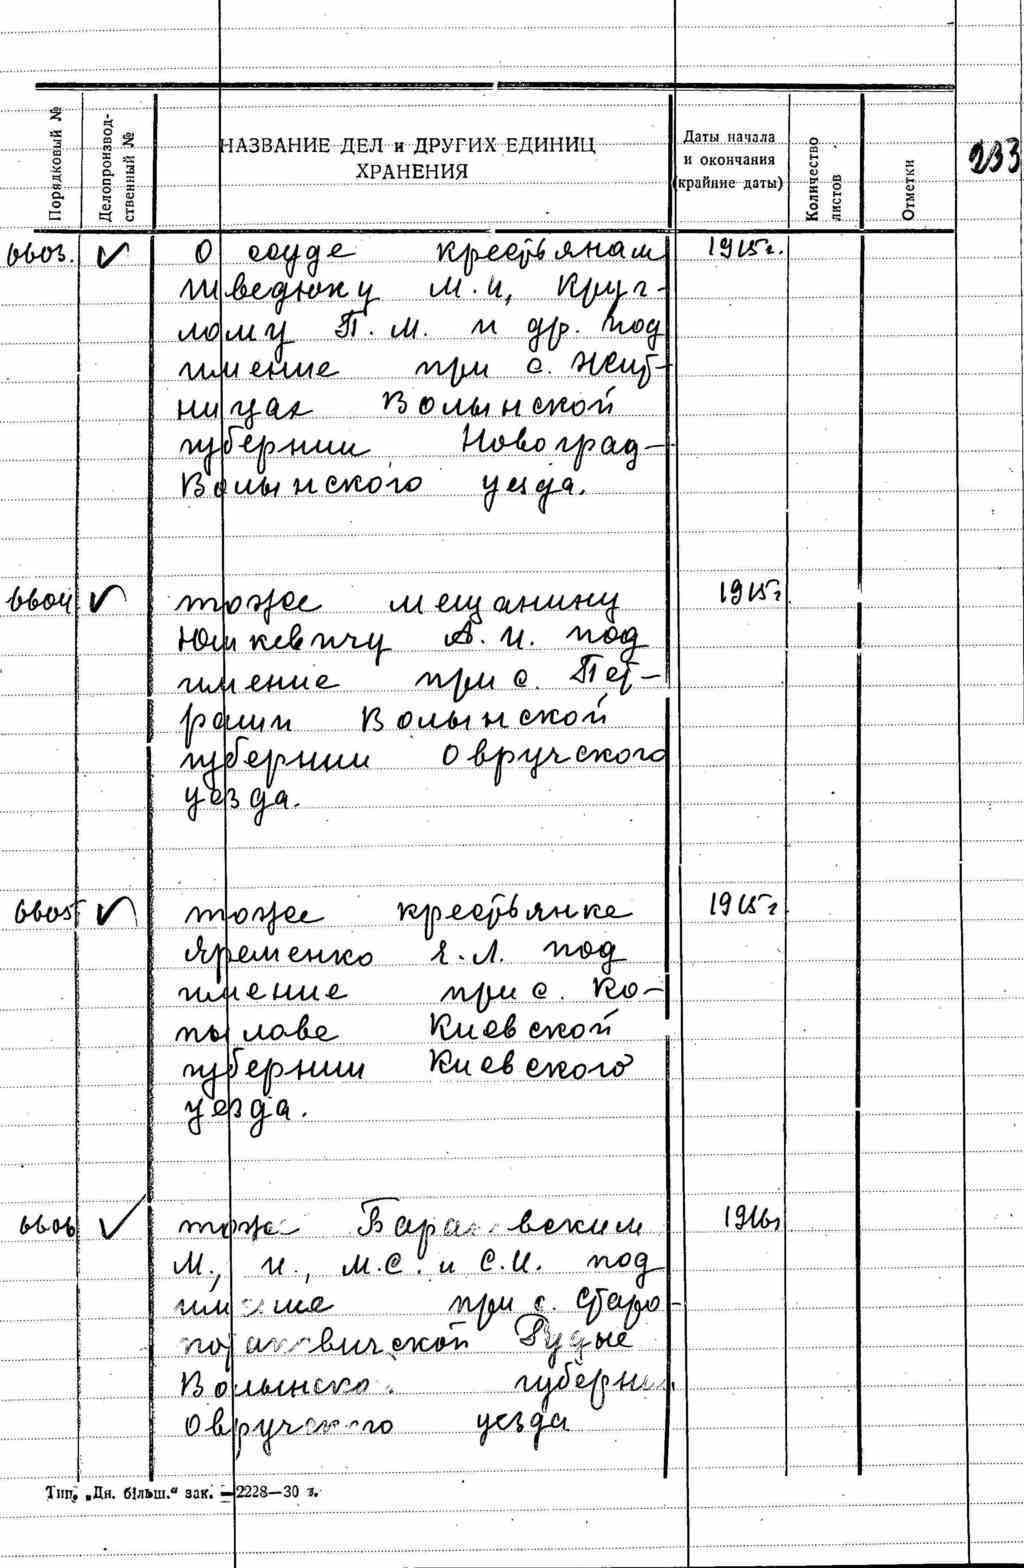 233
Порядковый №
Делопроизводственный №
НАЗВАНИЕ ДЕЛ и ДРУГИХ ЕДИНИЦ
ХРАНЕНИЯ
Даты начала
и окончания
(крайние даты)
Количество
листов
Отметки
6603. ✓ О ссуде крестьянам 1915г.
Шведюку М.И, Круг-
лому П.М. и др. под
имение при с. Жит-
ницах Волынской
губернии Новоград-
Волынского уезда.
6604 ✓ тоже мещанину 1915г
Юшкевичу А.И. под
имение при с. Пет-
раши Волынской
губернии Овручского
уезда.
6605 ✓ тоже крестьянке 1915г
Яременко Я.Л. под
имение при с. Ко-
пылове Киевской
губернии Киевского
уезда.
6606 ✓ тоже 1916г
М., И., М.С. и С.И. под
имение при с. Старо-
Рудне
Волынской губернии
Овручского уезда
Тип. „Дн. більш.“ зак. —2228—30 г.